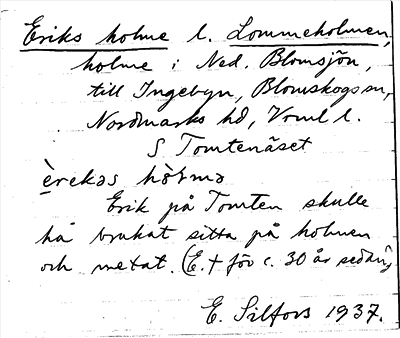 Eriks holme l. Lommeholmen,
holme i Ned. Blomsjön,
till Ingebyn, Blomskogs sn,
Nordmarks hd, Vrml l.
S Tomtenäset
èrekəs hòlmə
Erik på Tomten skulle
ha brukat sitta på holmen
och metat. (E. † för c. 30 år sedan)
E. Silfors 1937.